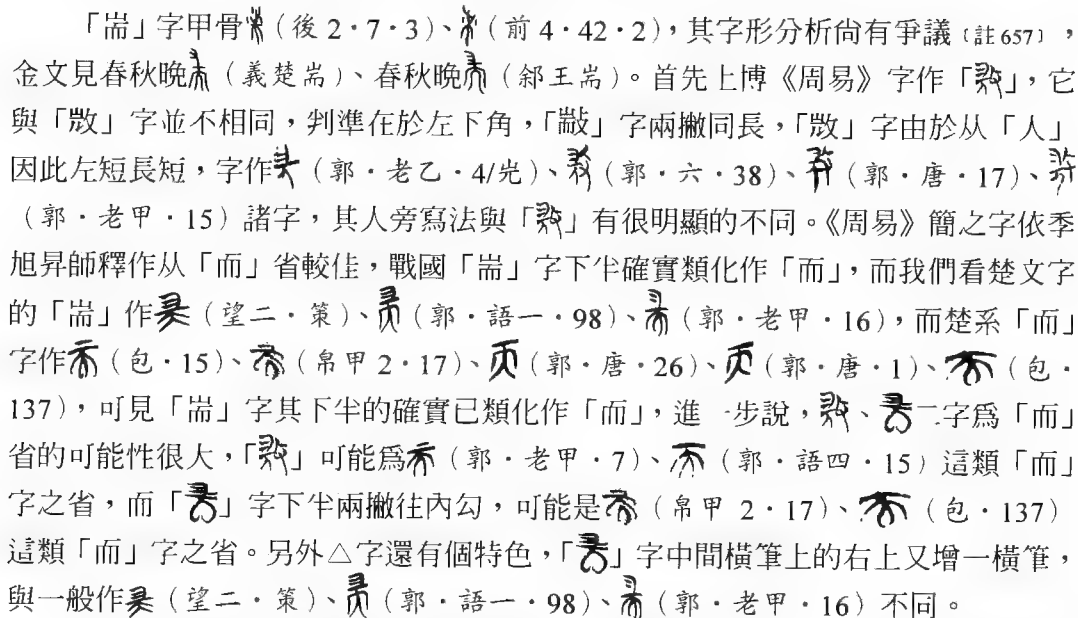 「耑」字甲骨（後2‧7‧3）、（前4‧42‧2），其字形分析尚有爭議〔註657〕，
金文見春秋晚（義楚耑）、春秋晚（䣄王耑）。首先上博《周易》字作「」，它
與「敳」字並不相同，判準在於左下角，「」字兩撇同長，「敳」字由於从「人」
因此左短長短，字作（郭‧老乙‧4/𡵂）、（郭‧六‧38）、（郭‧唐‧17）、
（郭‧老甲‧15）諸字，其人旁寫法與「」有很明顯的不同。《周易》簡之字依季
旭昇師釋作从「而」省較佳，戰國「耑」字下半確實類化作「而」，而我們看楚文字
的「耑」作（望二‧策）、（郭‧語一‧98）、（郭‧老甲‧16），而楚系「而」
字作（包‧15）、（帛甲2‧17）、（郭‧唐‧26）、（郭‧唐‧1）、（包‧
137），可見「耑」字其下半的確實已類化作「而」，進一步說，、二字為「而」
省的可能性很大，「」可能為（郭‧老甲‧7）、（郭‧語四‧15）這類「而」
字之省，而「」字下半兩撇往內勾，可能是（帛甲2‧17）、（包‧137）
這類「而」字之省。另外△字還有個特色，「」字中間橫筆上的右上又增一橫筆，
與一般作（望二‧策）、（郭‧語一‧98）、（郭‧老甲‧16）不同。